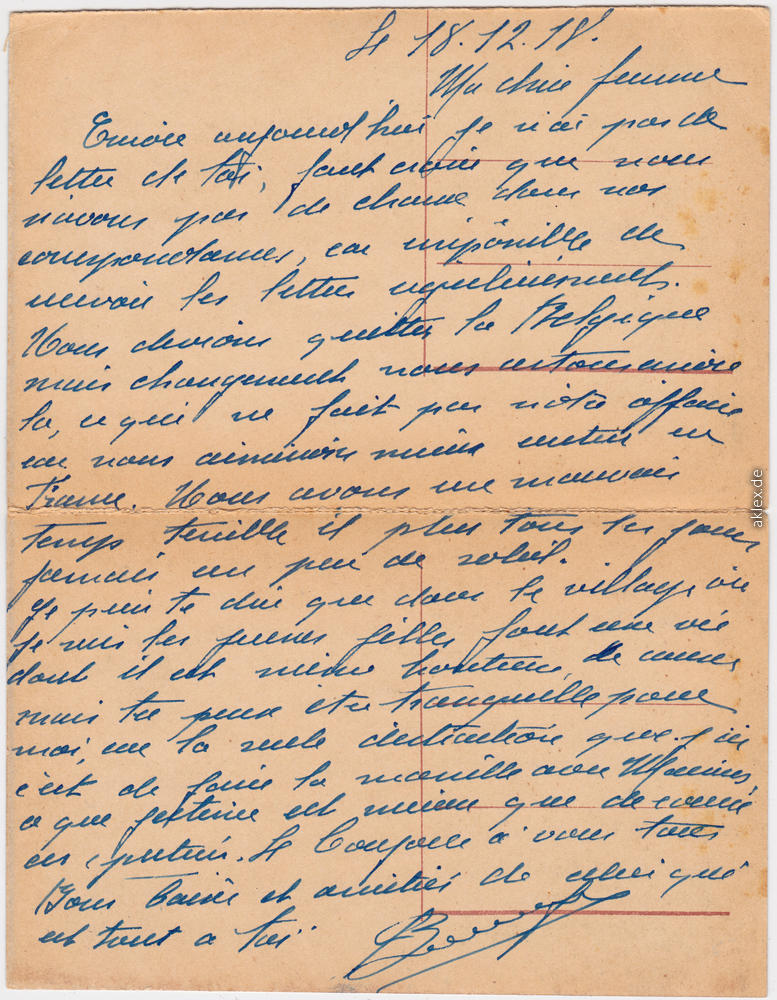 Le 18.12.18.
Ma chère femme
Encore aujourd'hui je n'ai pas de
lettre de toi, faut croire que nous
n'avons pas de chance dans nos
correspondances, car impossible de
recevoir les lettres régulièrement.
Nous devions quitter la Belgique
mais changement nous restons encore
la, ce qui ne fait pas notre affaire
car nous aimerions mieux rentrer en
France. Nous avons un mauvais
temps terrible il pleut tous les jours
jamais un peu de soleil.
Je puis te dire que dans le village ou
je suis les jeunes filles font une vie
dont il est même honteux de
mais tu peux être tranquille pour
moi, car la seule distraction que j'ai
c'est de faire la manille avec Marius
ce que j'estime est mieux que de courir
ces putin. Le bonjour a vous tous
Bons baisers et amitiés de celui qui
est tout a toi
aklex.de